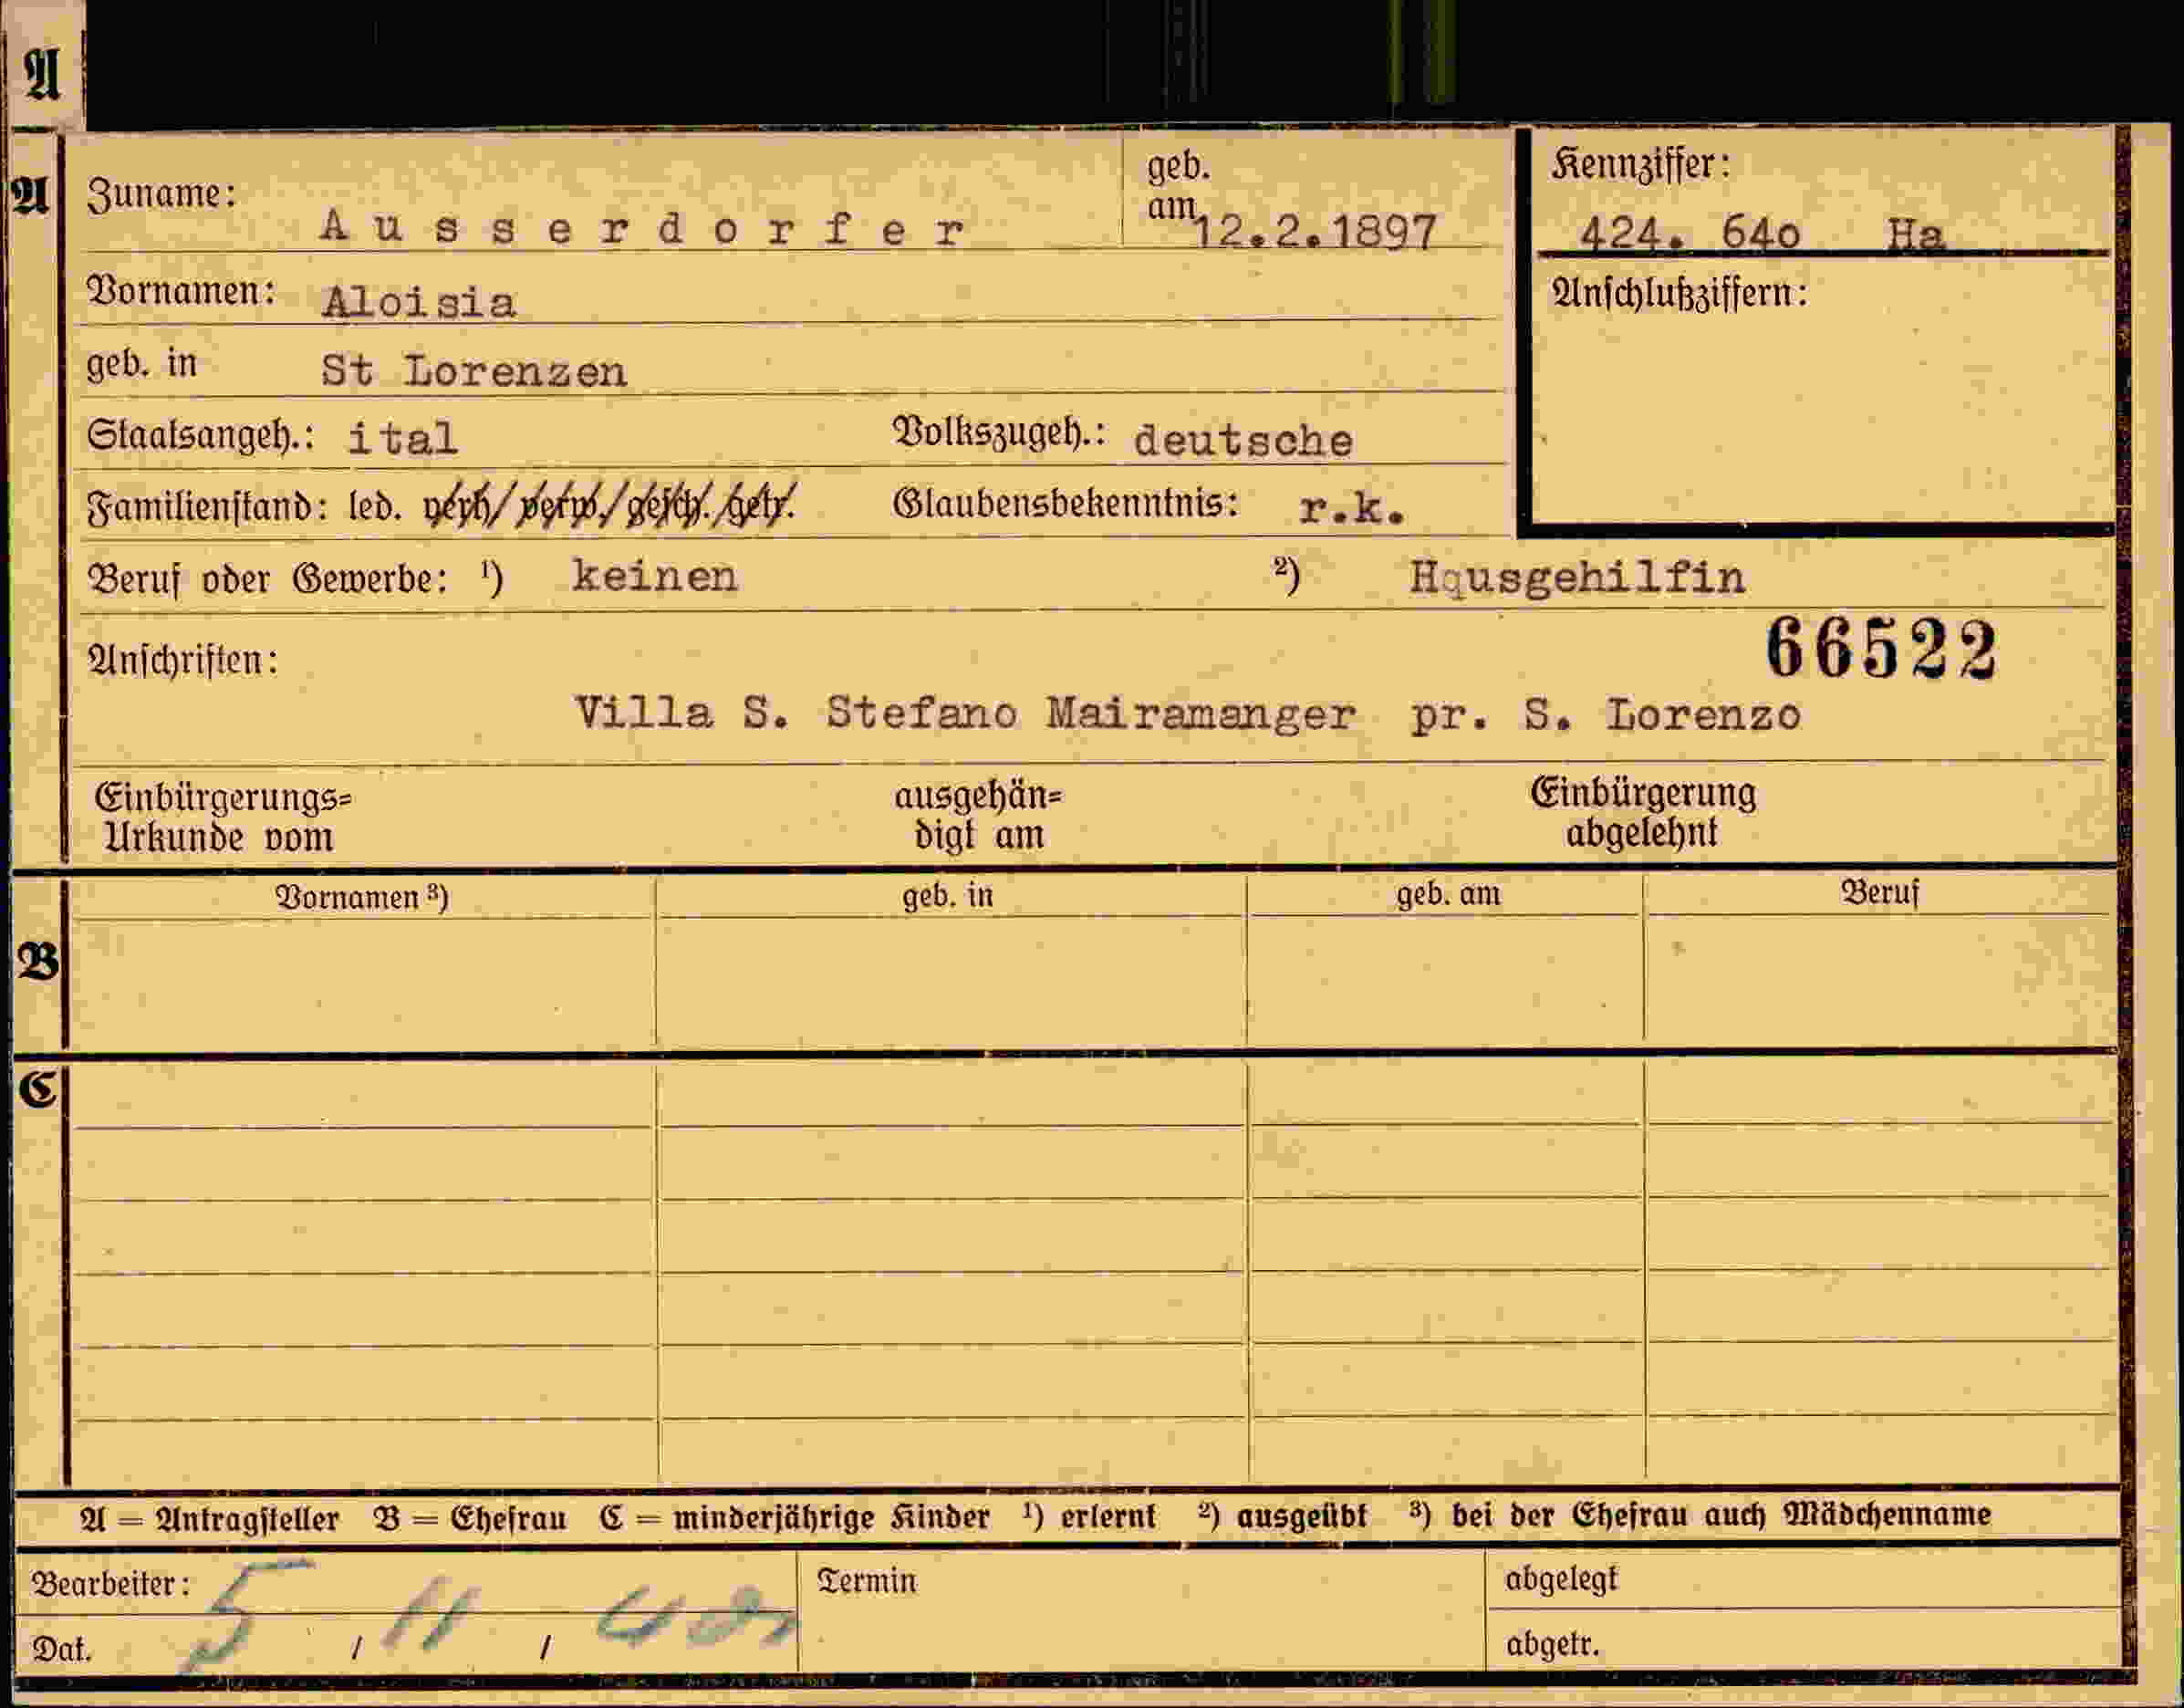 A
A
Zuname: Ausserdorfer geb. am 12.2.1897
Kennziffer:
424. 64o Ha
Vornamen: Aloisia
Anschlußziffern:
geb. in St Lorenzen
Staatsangeh.: ital Volkszugeh.: deutsche
Familienstand: led. verh/verw./gesch./getr. Glaubensbekenntnis: r.k.
Beruf oder Gewerbe: ¹) keinen ²) Hausgehilfin
66522
Anschriften:
Villa S. Stefano Mairamanger pr. S. Lorenzo
Einbürgerungs= ausgehän= Einbürgerung
Urkunde vom digt am abgelehnt
B
Vornamen ³) geb. in geb. am Beruf
C
A = Antragsteller B = Ehefrau C = minderjährige Kinder ¹) erlernt ²) ausgeübt ³) bei der Ehefrau auch Mädchenname
Bearbeiter: Termin abgelegt
Dat. 5 / 11 / 40 abgetr.